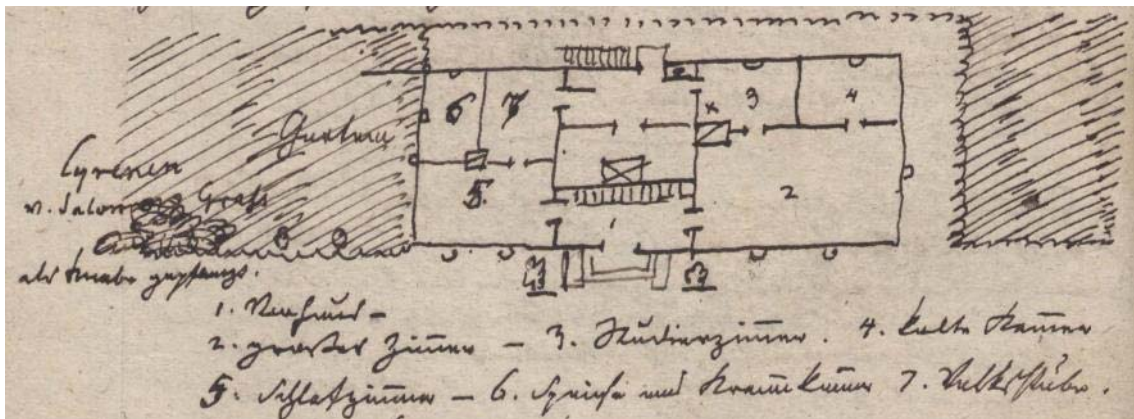 6
7
3
4
Garten
Cyrenen
v. Salom Graß
5.
1
2
als Knabe gepflanzt.
1. Vorhaus –
2. großes Zimmer – 3. Studierzimmer. 4. kalte Kammer
5. Schlafzimmer – 6. Speise und Kramkammer 7. Volksstube.